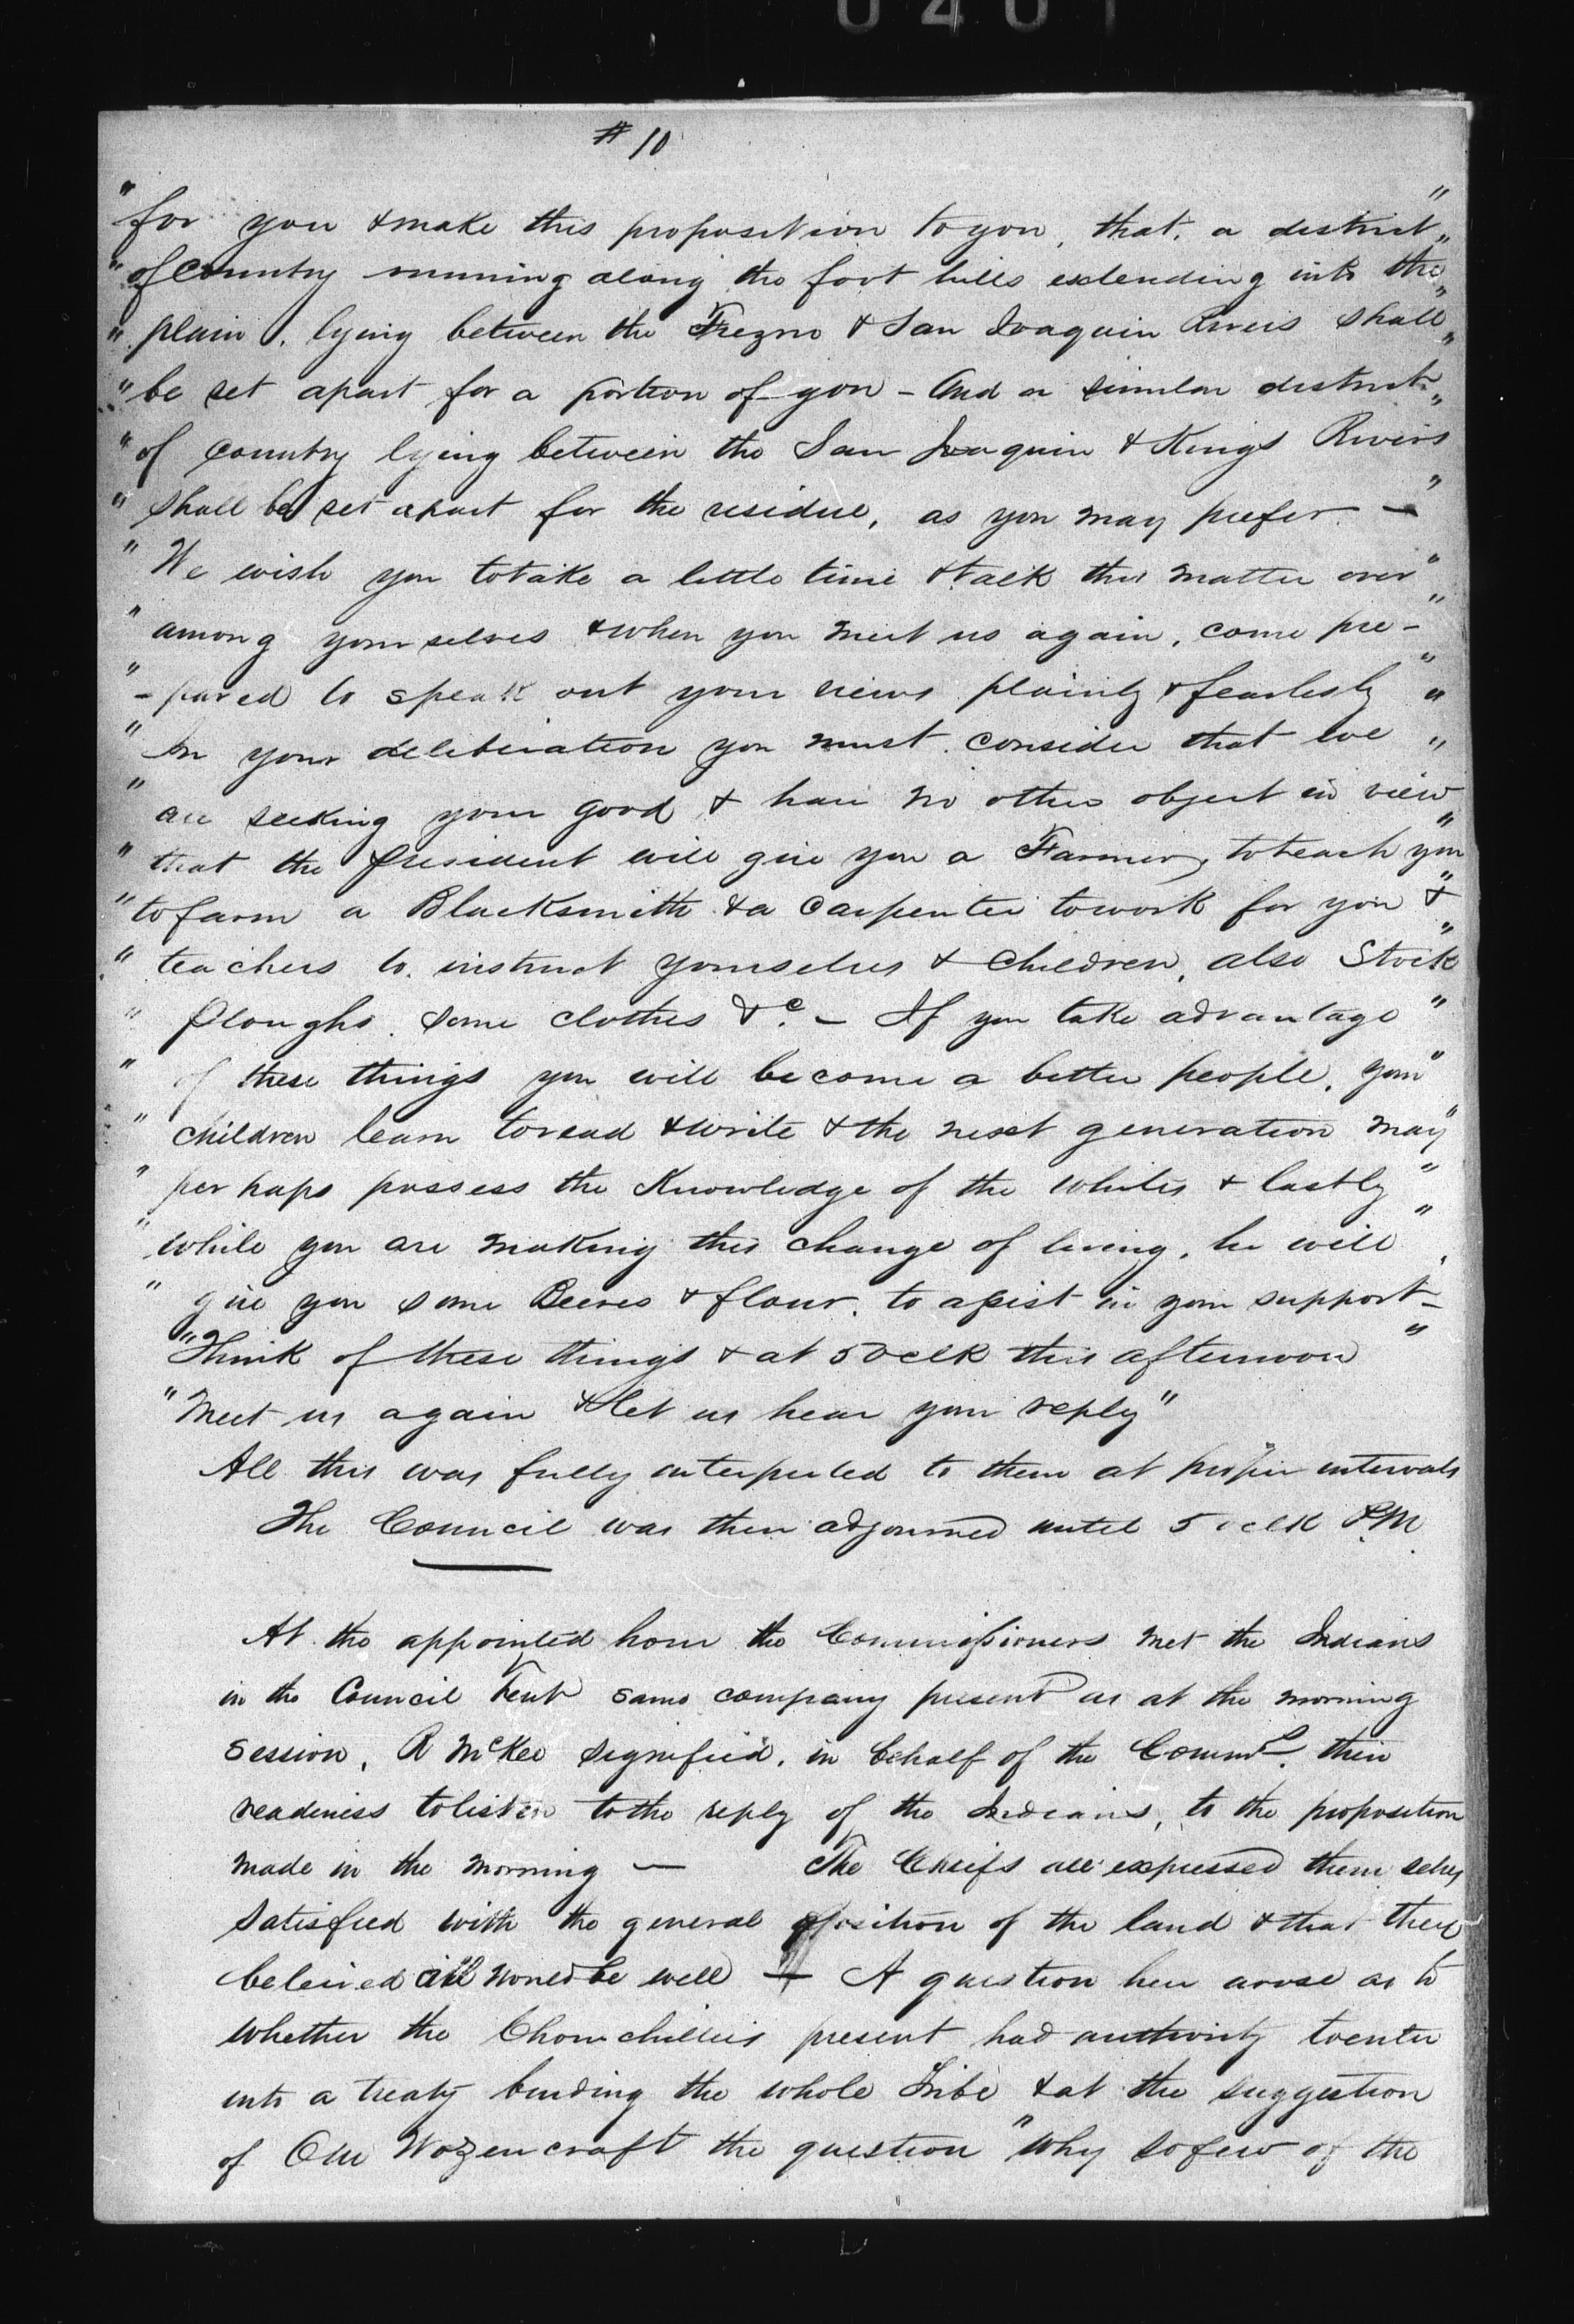 # 10
"for you & make this proposition to you, that, a district"
"of Country running along the foot hills extending into the"
"plain, lying between the Frezno & San Joaquin Rivers shall"
"be set apart for a portion of you - And a similar district"
"of Country lying between the San Joaquin & Kings Rivers
"shall be set apart for the residue, as you may prefer. —"
"We wish you to take a little time & talk this matter over"
"among yourselves & when you meet us again, come pre-"
"-pared to speak out your views plainly & fearlessly"
"In your deliberation you must consider that we"
"are seeking your good & have no other object in view
"that the President will give you a Farmer, to teach you"
"to farm a Blacksmith & a Carpenter to work for you &"
"teachers to instruct yourselves & Children, also Stock"
"Ploughs, some clothes &c. — If you take advantage"
"of these things you will become a better people, your"
"children learn to read & write & the next generation may"
"perhaps possess the Knowledge of the whites & lastly"
"while you are making this change of living, he will"
"give you some Beeves & flour, to assist in your support-
"Think of these things & at 5 oclk this afternoon"
"Meet us again & let us hear your reply"
All this was fully interpreted to them at proper intervals
The Council was then adjourned until 5 oclk P.M.
At the appointed hour the Commissioners met the Indians
in the Council Tent same company present as at the morning
session, R McKee signified, in behalf of the Commrs. their
readiness to listen to the reply of the Indians, to the proposition
made in the morning — The Cheifs all expressed themselves
satisfied with the general position of the land & that they
beleived all would be well — A question here arose as to
whether the Chouchillies present had authority to enter
into a treaty binding the whole Tribe & at the suggestion
of O M Wozencraft the question "Why so few of the